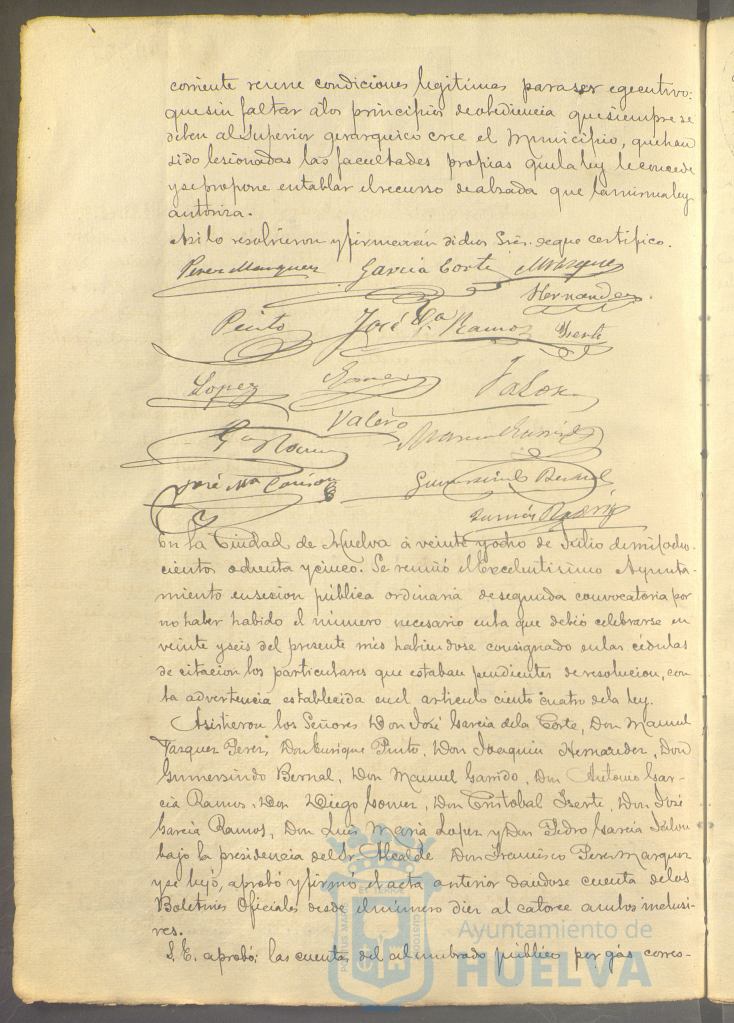 corriente reune condiciones legitimas para ser egecutivo:
que sin faltar álos principios de obediencia que siempre se
deben al Superior gerarquico cree el Municipio, que han
sido lesionadas las facultades propias que la ley le concede
y se propone entablar el recurso de alzada que la misma ley
autoriza.
Asi lo resolvieron y firmarán dichos Sres. de que certifico.
Perez Marquez García Corte M Vazquez
Hernandez.
Pinto José Ga. Ramos Yserte
Lopez Gomez
Valero
Ga Ramos
José Ma
Gumersindo Bernal
En la Ciudad de Huelva á veinte y ocho de Julio de mil ocho-
cientos ochenta y cinco. Se reunió el Excelentisimo Ayunta-
miento en sesion pública ordinaria de segunda convocatoria por
no haber habido el número necesario en la que debió celebrarse en
veinte y seis del presente mes habiendose consignado en las cédulas
de citacion los particulares que estaban pendientes de resolucion, con
la advertencia establecida en el articulo ciento cuatro de la ley.
Asistieron los Señores Don José García de la Corte, Don Manuel
Vazquez Perez, Don Enrique Pinto, Don Joaquin Hernandez, Don
Gumersindo Bernal, Don Manuel Garrido, Don Antonio Gar-
cia Ramos, Don Diego Gomez, Don Cristobal Yserte, Don José
García Ramos, Don Luis Maria Lopez y Don Pedro García
bajo la presidencia del Sr. Alcalde Don Francisco Perez Marquez
y se leyó, aprobó y firmó el acta anterior dandose cuenta de los
Boletines Oficiales desde el número diez al catorce ambos inclusi-
ves.
S. E. aprobó: las cuentas del alumbrado público por gás corres-
Ayuntamiento de
HUELVA